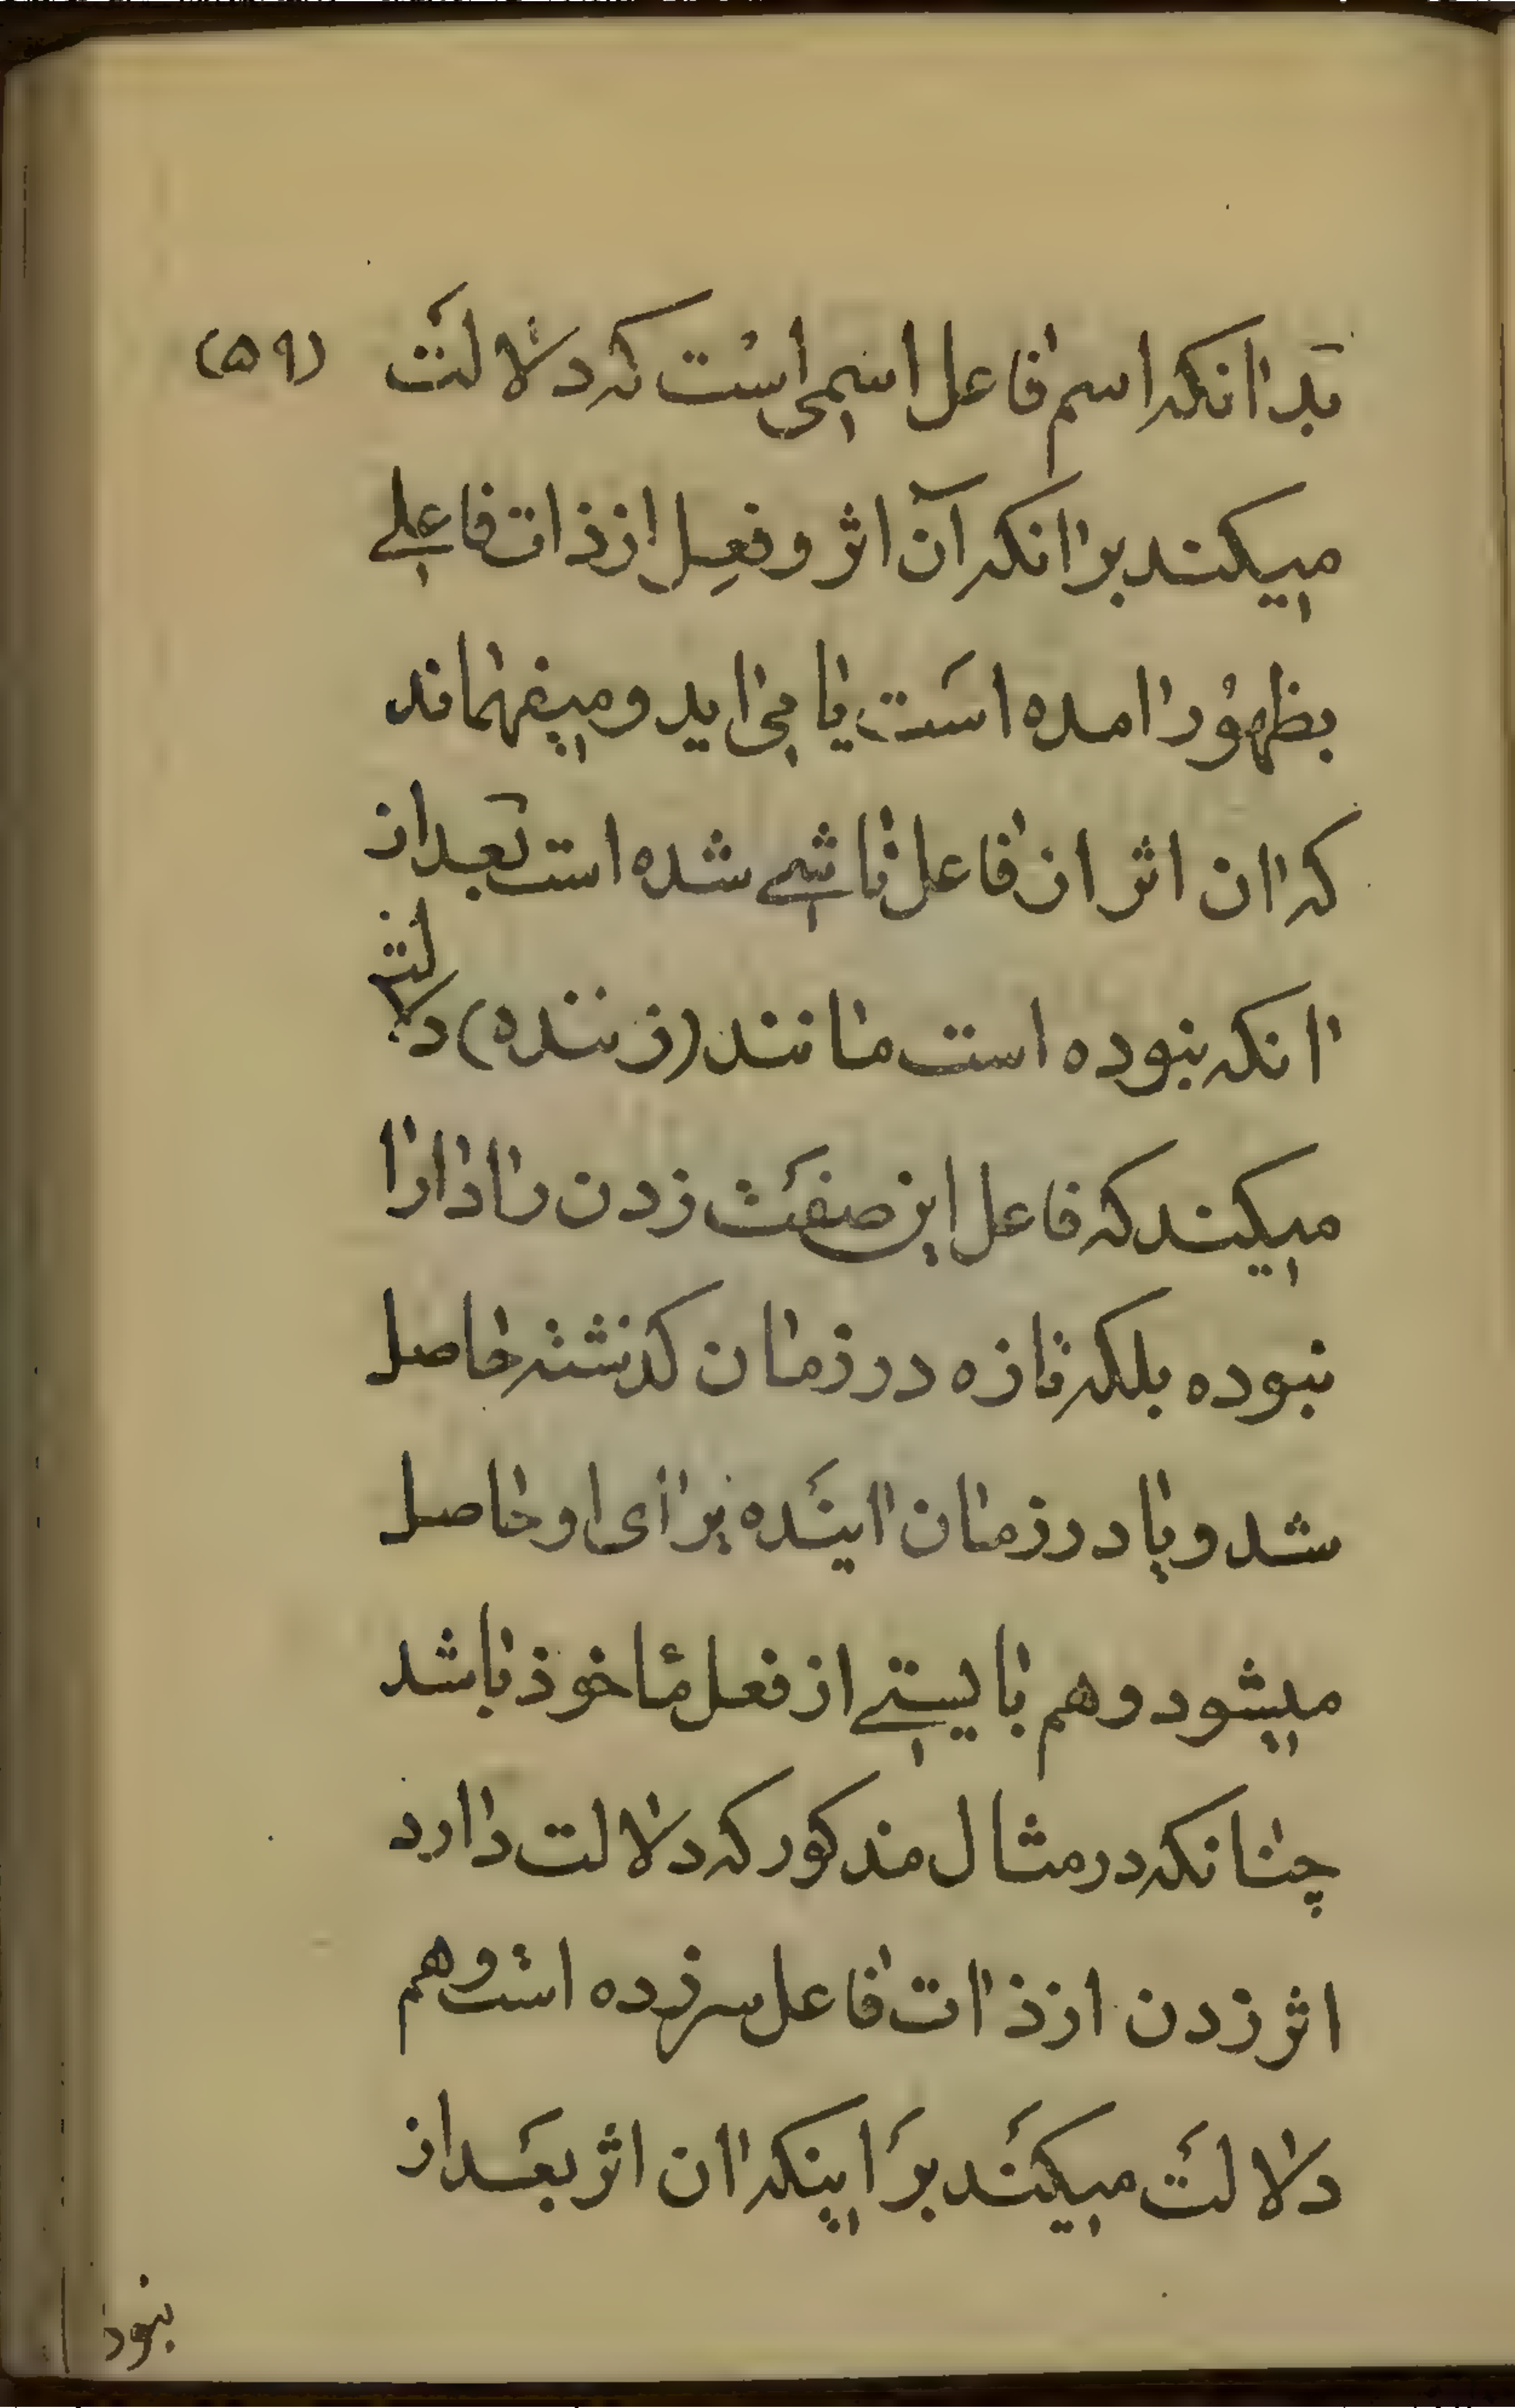 بدانکه اسم فاعل اسمی است که دلالت (۵۹)
میکند برانکه آن اثر و فعل از ذات فاعلی
بظهور امده است یا می اید و میفهماند
که ان اثر از فاعل ناشی شده است بعد از
انکه نبوده است مانند (زننده) دلالت
میکند که فاعل این صفت زدن را دارا
نبوده بلکه تازه در زمان کذشته حاصل
شد و یا در زمان اینده برای او حاصل
میشود و هم بایستی از فعل ماخوذ باشد
چنانکه در مثال مذکور که دلالت دارد
اثر زدن از ذات فاعل سرزده است و هم
دلالت میکند بر اینکه ان اثر بعد از
نبود